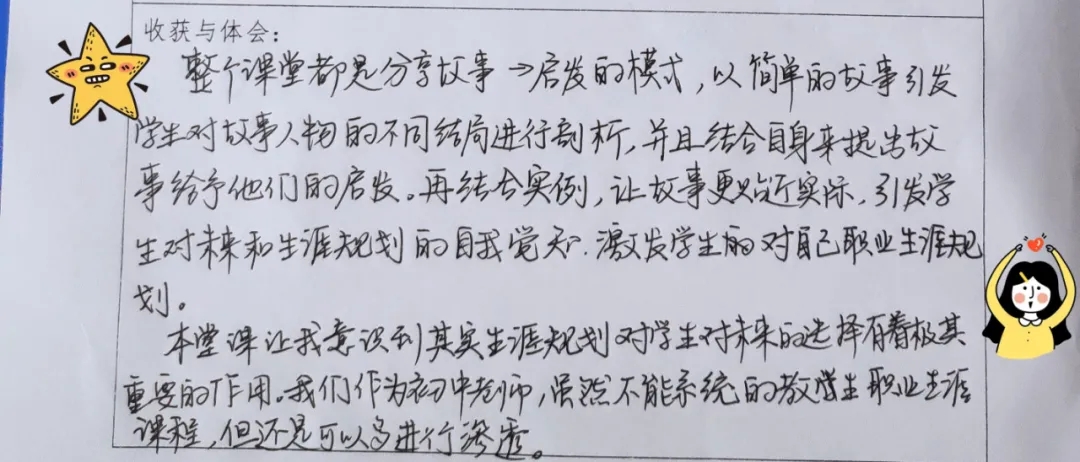 收获与体会：
整个课堂都是分享故事→启发的模式，以简单的故事引发
学生对故事人物的不同结局进行剖析，并且结合自身来提出故
事给予他们的启发。再结合实例，让故事更贴近实际，引发学
生对未来和生涯规划的自我觉知，激发学生的对自己职业生涯规
划。
本堂课让我意识到其实生涯规划对学生对未来的选择有着极其
重要的作用。我们作为初中老师，虽然不能系统的教学生职业生涯
课程，但还是可以多进行渗透。